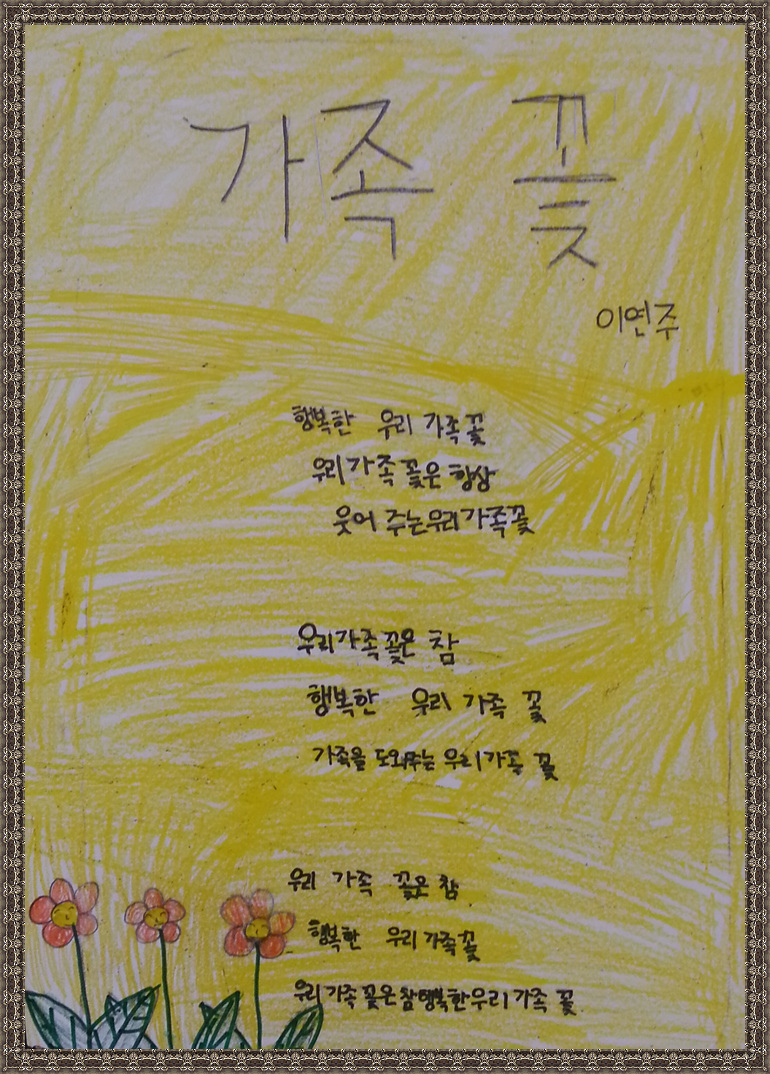 가족 꽃
이연주
행복한 우리 가족 꽃
우리 가족 꽃은 항상
웃어 주는 우리 가족 꽃
우리 가족 꽃은 참
행복한 우리 가족 꽃
가족을 도와주는 우리 가족 꽃
우리 가족 꽃은 참
행복한 우리 가족 꽃
우리 가족 꽃은 참 행복한 우리 가족 꽃